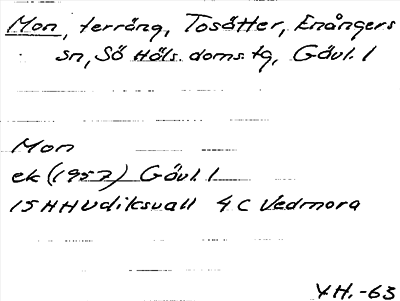 Mon, terräng, Tosätter, Enångers
sn, Sö Häls. doms. tg, Gävl. l
Mon
ek (1957) Gävl. l
15 H Hudiksvall 4 C Vedmora
YH.-63